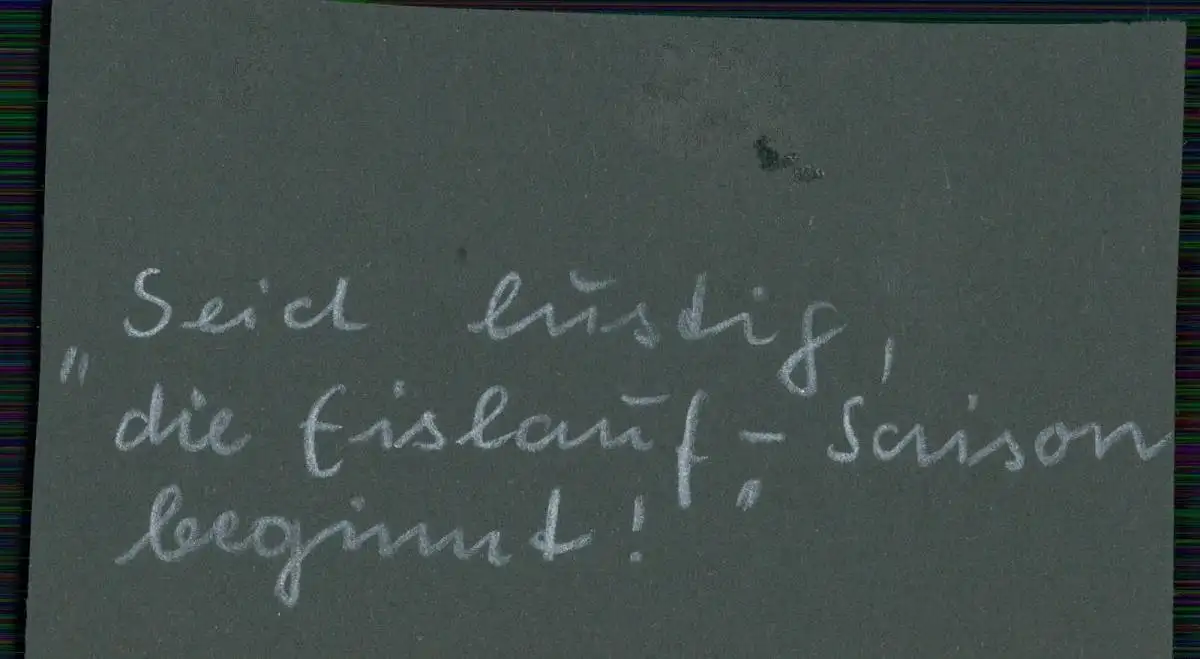 Seid lustig,
"die Eislauf-Saison
beginnt!"